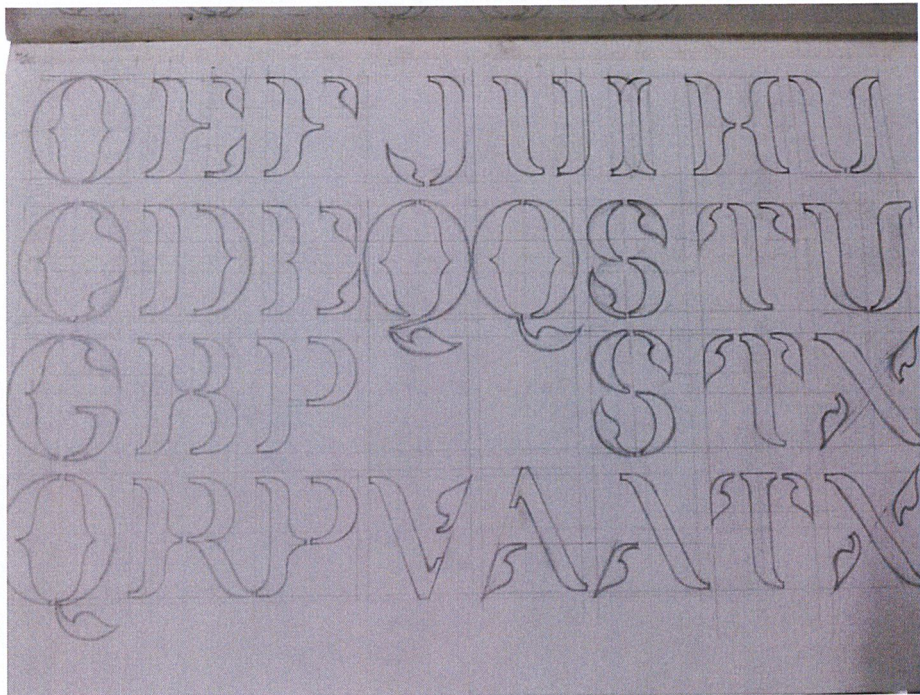 O E F J U I H U
C D E Q Q S T U
G B P S T X
Q R P V A A T X